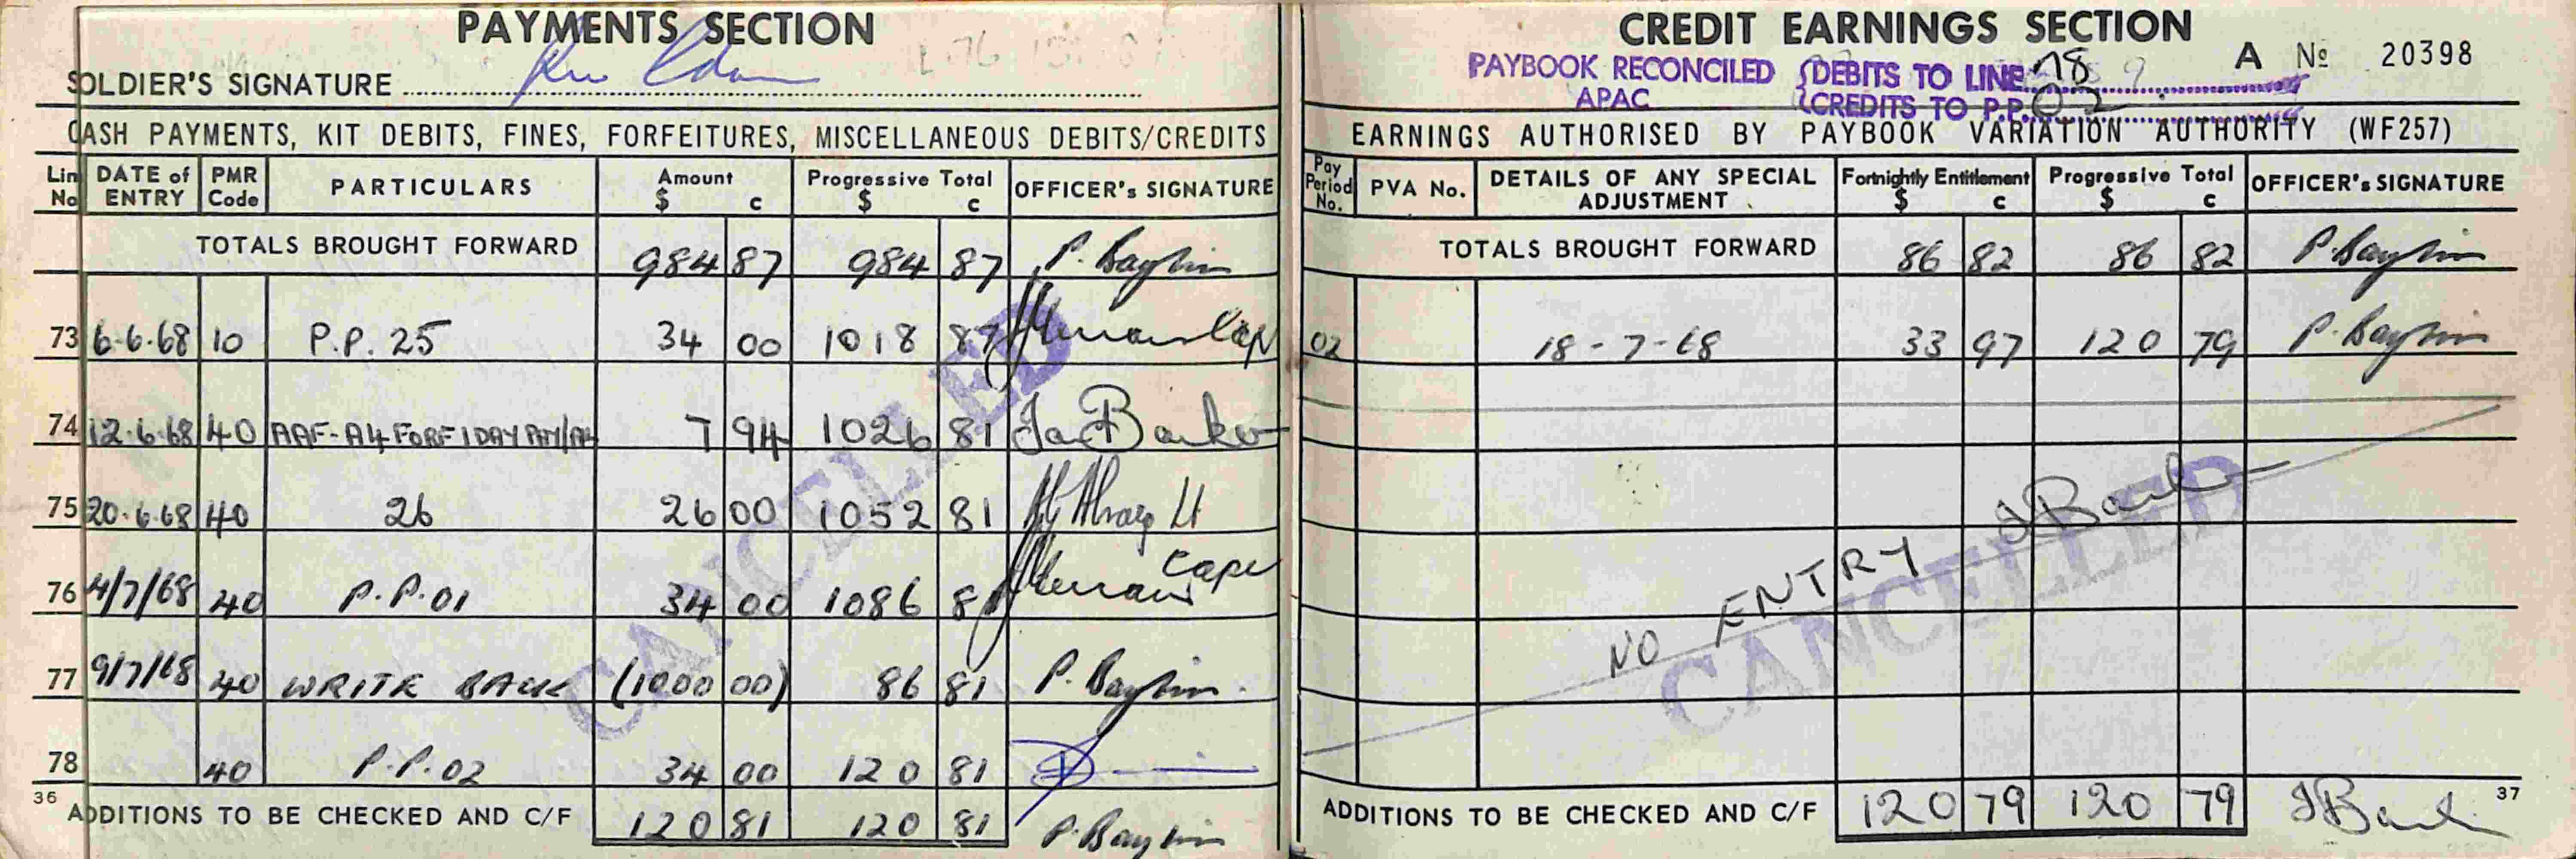 PAYMENTS SECTION
SOLDIER'S SIGNATURE
CASH PAYMENTS, KIT DEBITS, FINES, FORFEITURES, MISCELLANEOUS DEBITS/CREDITS
Lin No DATE of ENTRY PMR Code PARTICULARS Amount $ c Progressive Total $ c OFFICER's SIGNATURE
TOTALS BROUGHT FORWARD 984 87 984 87
73 6.6.68 10 P.P. 25 34 00 1018 87
74 12.6.68 40 AAF-A4 FORF 1 DAY PAY/ 7 94 1026 81
75 20.6.68 40 26 26 00 1052 81 Lt
76 4/7/68 40 P.P.01 34 00 1086 81
77 9/7/68 40 WRITE BACK (1000 00) 86 81
78 40 P.P.02 34 00 120 81
36 ADDITIONS TO BE CHECKED AND C/F 120 81 120 81
CANCELLED
CREDIT EARNINGS SECTION
A No 20398
PAYBOOK RECONCILED APAC
DEBITS TO LINE 78
CREDITS TO P.P. 02
EARNINGS AUTHORISED BY PAYBOOK VARIATION AUTHORITY (WF257)
Pay Period No. PVA No. DETAILS OF ANY SPECIAL ADJUSTMENT Fortnightly Entitlement $ c Progressive Total $ c OFFICER's SIGNATURE
TOTALS BROUGHT FORWARD 86 82 86 82
02 18-7-68 33 97 120 79
NO ENTRY
CANCELLED
ADDITIONS TO BE CHECKED AND C/F 120 79 120 79
37